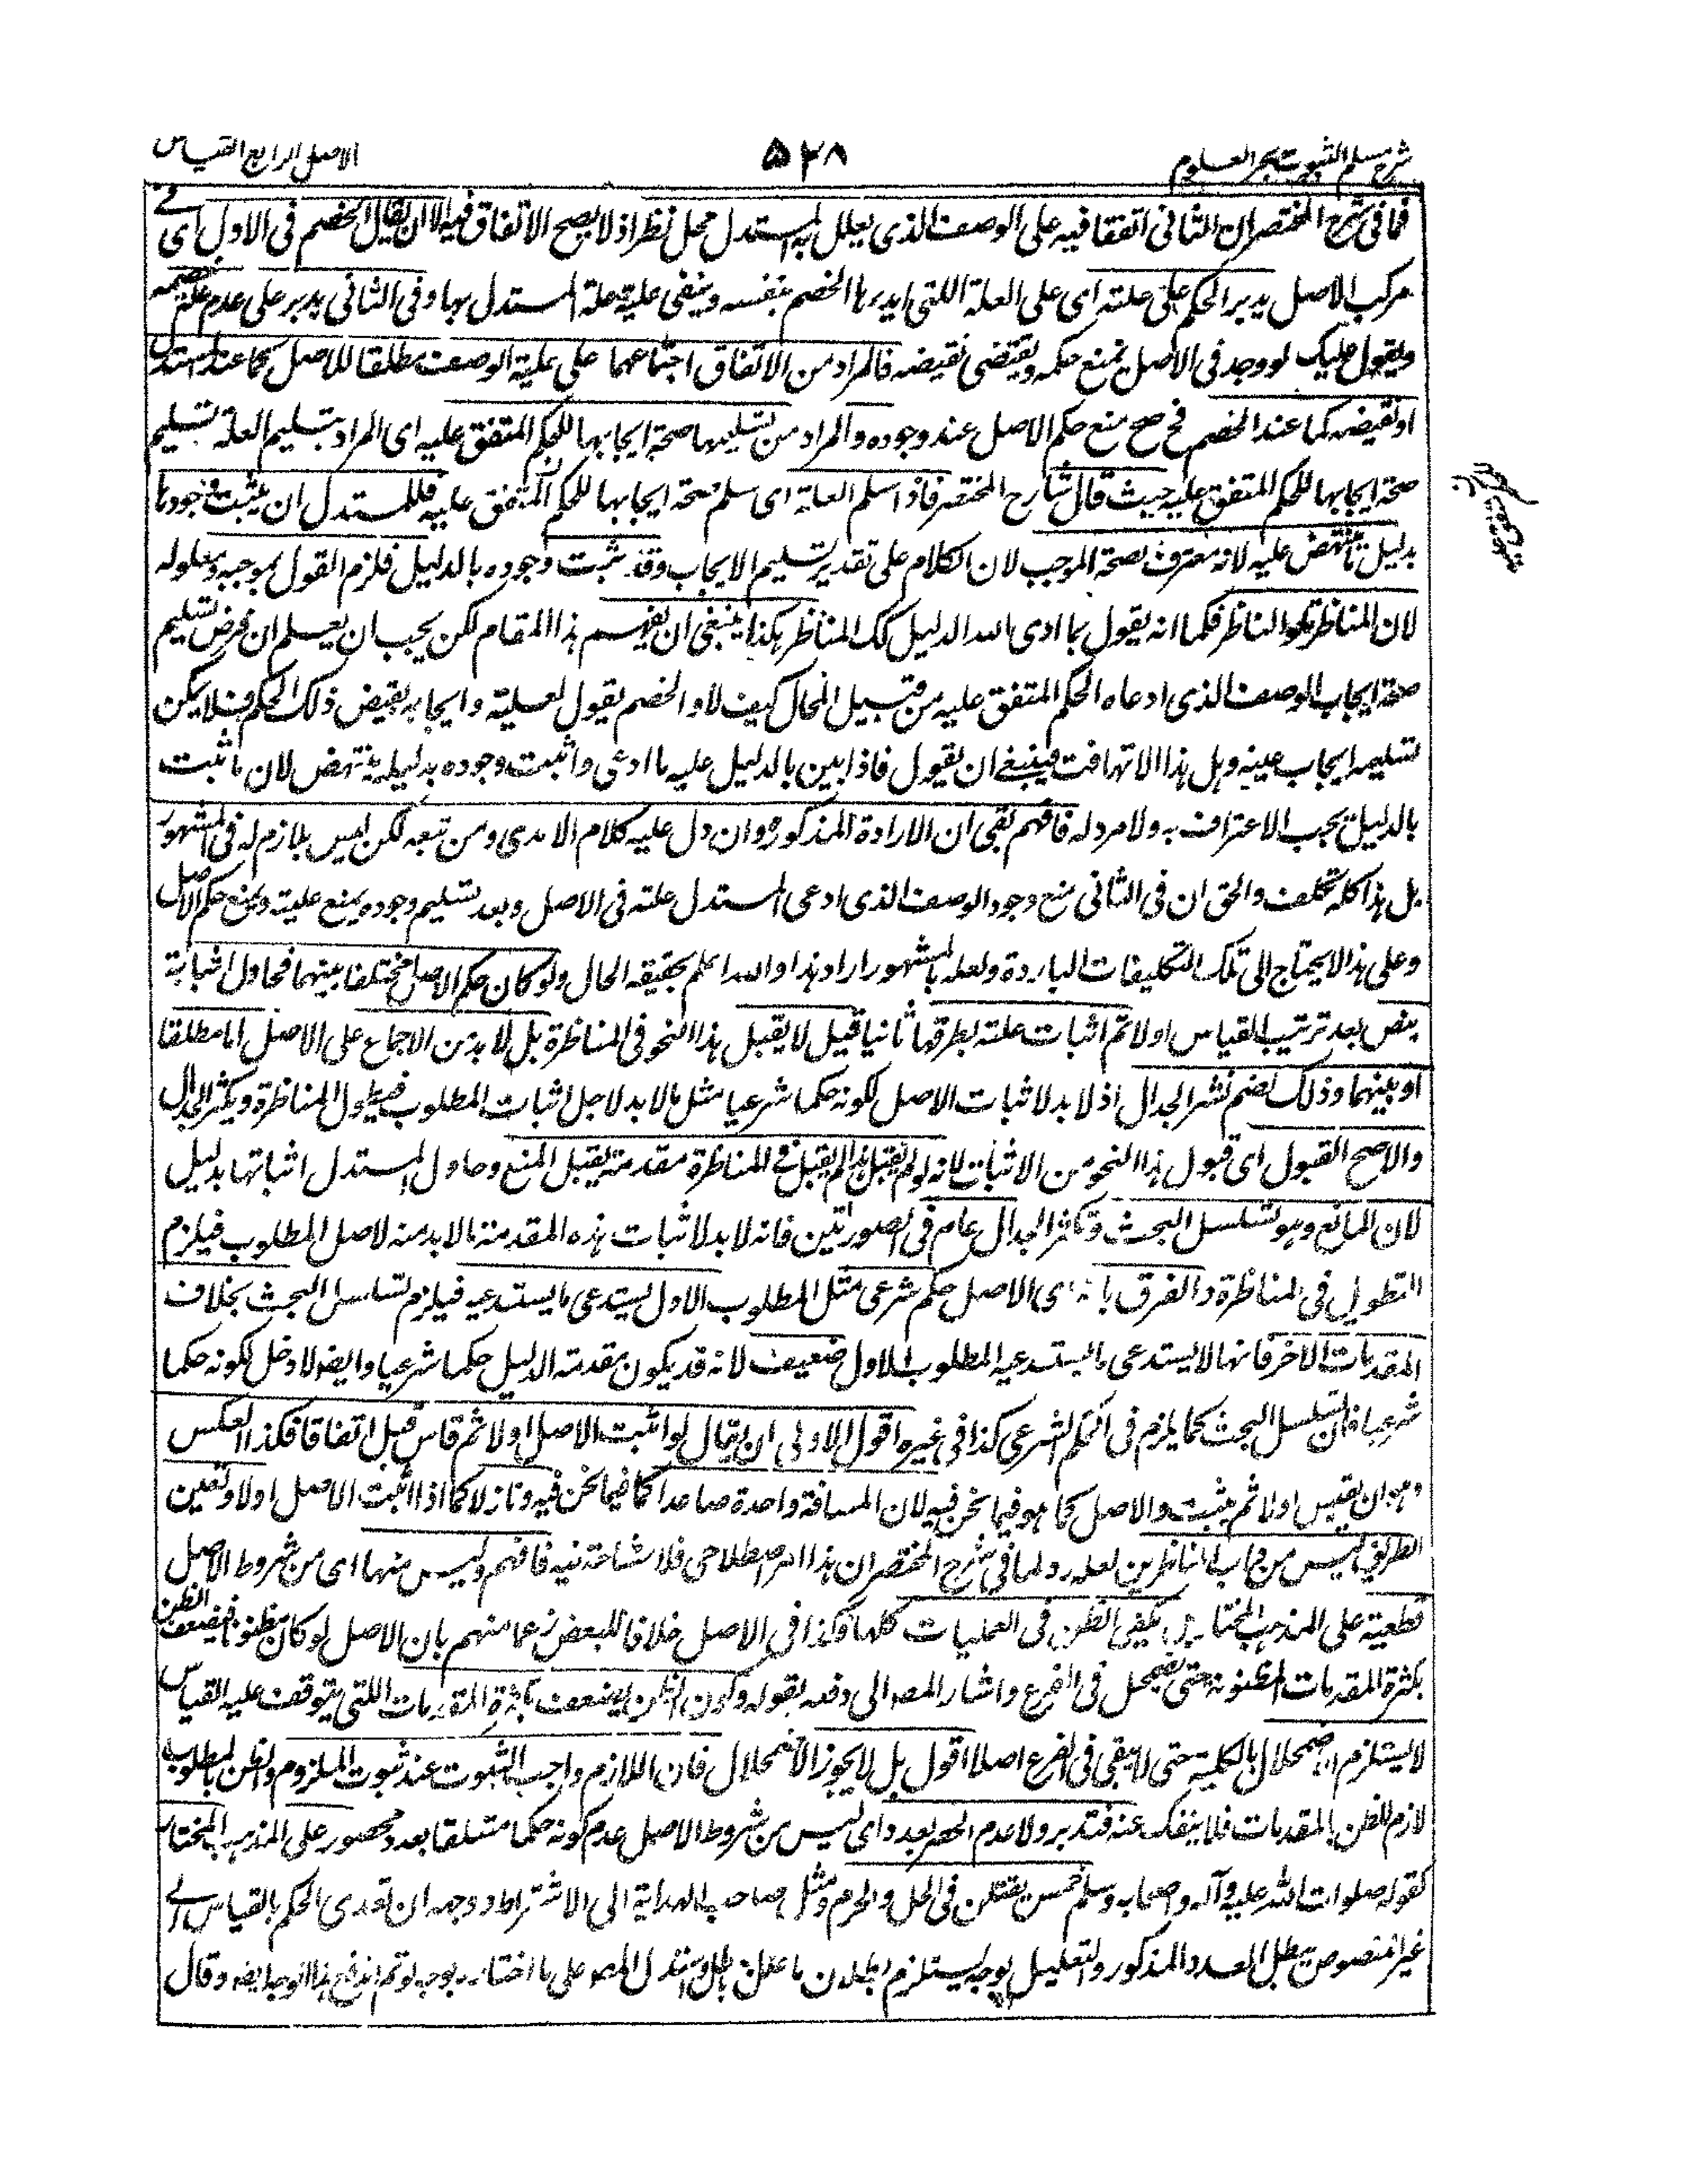 شرح مسلم الثبوت بحر العلوم
۵۲۸
الاصل الرابع القياس
فما فى شرح المختصر ان الثانى اتفقا فيه على الوصف الذى يعلل به المستدل محل نظر اذ لا يصح الاتفاق فيه الا ان يقال الخصم فى الاول اى فى
مركب الاصل يدير الحكم على علته اى على العلة اللتى ابدرها الخصم بنفسه وينفى علية علة المستدل بها وفى الثانى يدير على عدم علة خصمه
ويقول عليك لو وجد فى الاصل يمنع حكمه ويقتضى نقيضه فالمراد من الاتفاق اجتماعهما على علية الوصف مطلقا للاصل كما عند المستدل
او نقيضه كما عند الخصم فح صح منع حكم الاصل عند وجوده والمراد من تسليمها صحة ايجابها للحكم المتفق عليه اى المراد بتسليم العلة تسليم
صحة ايجابها للحكم المتفق عليه حيث قال شارح المختصر فاذا سلم العلة اى سلم صحة ايجابها للحكم المتفق عليه فللمستدل ان يثبت وجودها
بدليل ينتهض عليه لانه معترف بصحة الموجب لان الكلام على تقدير تسليم الايجاب وقد ثبت وجوده بالدليل فلزم القول بموجبه ومعلوله
لان المناظر تلو الناظر فكما انه يقول بما ادى الله الدليل كك المناظر هكذا ينبغى ان يفهم هذا المقام لكن يجب ان يعلم ان فرض تسليم
صحة ايجاب الوصف الذى ادعاه الحكم المتفق عليه من قبيل المحال كيف لا والخصم يقول لعلية وايجابه نقيض ذلك الحكم فلا يمكن
تسليمه ايجاب عينه وهل هذا الا تهافت فينبغى ان يقول فاذا بين بالدليل علية ما ادعى واثبت وجوده بدليله ينتهض لان ما ثبت
بالدليل يجب الاعتراف به ولا مرد له فافهم بقى ان الارادة المذكورة وان دل عليه كلام الامدى ومن تبعه لكن ليس بلازم له فى المشهور
بل هذا كله تكلف والحق ان فى الثانى منع وجود الوصف الذى ادعى المستدل علته فى الاصل وبعد تسليم وجوده يمنع عليته ويمنع حكم الاصل
وعلى هذا لا يحتاج الى تلك التكليفات الباردة ولعله بالمشهور اراد هذا والله اعلم بحقيقة الحال ولو كان حكم الاصل مختلفا بينهما فحاول اثباته
بنص بعد ترتيب القياس اولا ثم اثبات علته بطرقها ثانيا فقيل لا يقبل هذا النحو فى المناظرة بل لا بد من الاجماع على الاصل اما مطلقا
او بينهما وذلك لضم نشر الجدال اذ لا بد لاثبات الاصل لكونه حكما شرعيا مثل ما لا بد لاجل اثبات المطلوب فيطول المناظرة ويكثر الجدال
والاصح القبول اى قبول هذا النحو من الاثبات لانه لو لم يقبل هذا لم يقبل فى المناظرة مقدمة يقبل المنع وحاول المستدل اثباتها بدليل
لان المانع وهو تسلسل البحث وتكثر الجدال عام فى الصورتين فانه لا بد لاثبات هذه المقدمة ما لا بد منه لاصل المطلوب فيلزم
التطويل فى المناظرة والفرق بانه اى الاصل حكم شرعى مثل المطلوب الاول يستدعى ما يستدعيه فيلزم تسلسل البحث بخلاف
المقدمات الاخر فانها لا يستدعى ما يستدعيه المطلوب الاول ضعيف لانه قد يكون مقدمة الدليل حكما شرعيا وايضا لا دخل لكونه حكما
شرعيا فان تسلسل البحث كما يلزم فى الحكم الشرعى كذا فى غيره اقول الاولى ان يقال لو اثبت الاصل اولا ثم قاس قبل اتفاقا فكذا العكس
وهو ان يقيس اولا ثم يثبت والاصل كما هو فيما نحن فيه لان المسافة واحدة صاعدا كما فيما نحن فيه ونازلا كما اذا اثبت الاصل اولا وتعين
الطريق ليس من دأب المناظرين لعله رد لما فى شرح المختصر ان هذا امر اصطلاحى فلا مشاحة فيه فافهم وليس منها اى من شروط الاصل
قطعية على المذهب المختار بل يكفى الظن فى العمليات كلها وكذا فى الاصل خلافا للبعض زعما منهم بان الاصل لو كان مظنونا فيضعف الظن
بكثرة المقدمات المظنونة حتى يضمحل فى الفرع واشار المصه الى دفعه بقوله وكون الظن يضعف بكثرة المقدمات اللتى يتوقف عليه القياس
لا يستلزم الاضمحلال بالكلية حتى لا يبقى فى الفرع اصلا اقول بل لا يجوز الاضمحلال فان اللازم واجب الثبوت عند ثبوت الملزوم والظن بالمطلوب
لازم للظن بالمقدمات فلا ينفك عنه فتدبر ولا عدم الحصر بعدد اى ليس من شروط الاصل عدم كونه حكما متعلقا بعدد محصور على المذهب المختار
كقوله صلوات الله عليه وآله واصحابه وسلم خمس يقتلن فى الحل والحرم ومثل صاحب الهداية الى الاشتراط ووجهه ان تعدى الحكم بالقياس الى
غير المنصوص يبطل العدد المذكور والتعليل بوجه يستلزم بطلان ما علل باطل واستدل المصه على ما اختاره بوجه لو تم اندفع هذا الوجه ايضا وقال